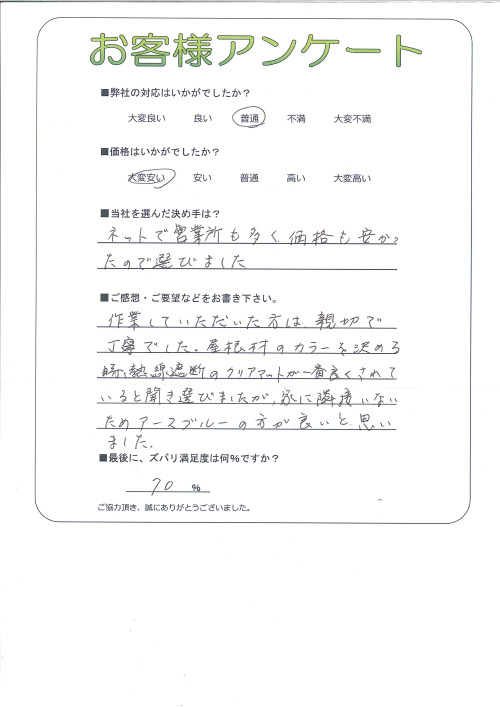 お客様アンケート
■弊社の対応はいかがでしたか？
大変良い 良い 普通 不満 大変不満
■価格はいかがでしたか？
大変安い 安い 普通 高い 大変高い
■当社を選んだ決め手は？
ネットで営業所も多く、価格も安かっ
たので選びました
■ご感想・ご要望などをお書き下さい。
作業していただいた方は親切で
丁寧でした。屋根材のカラーを決める
時、熱線遮断のクリアマットが一番良くされて
いると聞き選びましたが、家に隣接いない
ためアースブルーの方が良いと思い
ました。
■最後に、ズバリ満足度は何％ですか？
70 ％
ご協力頂き、誠にありがとうございました。